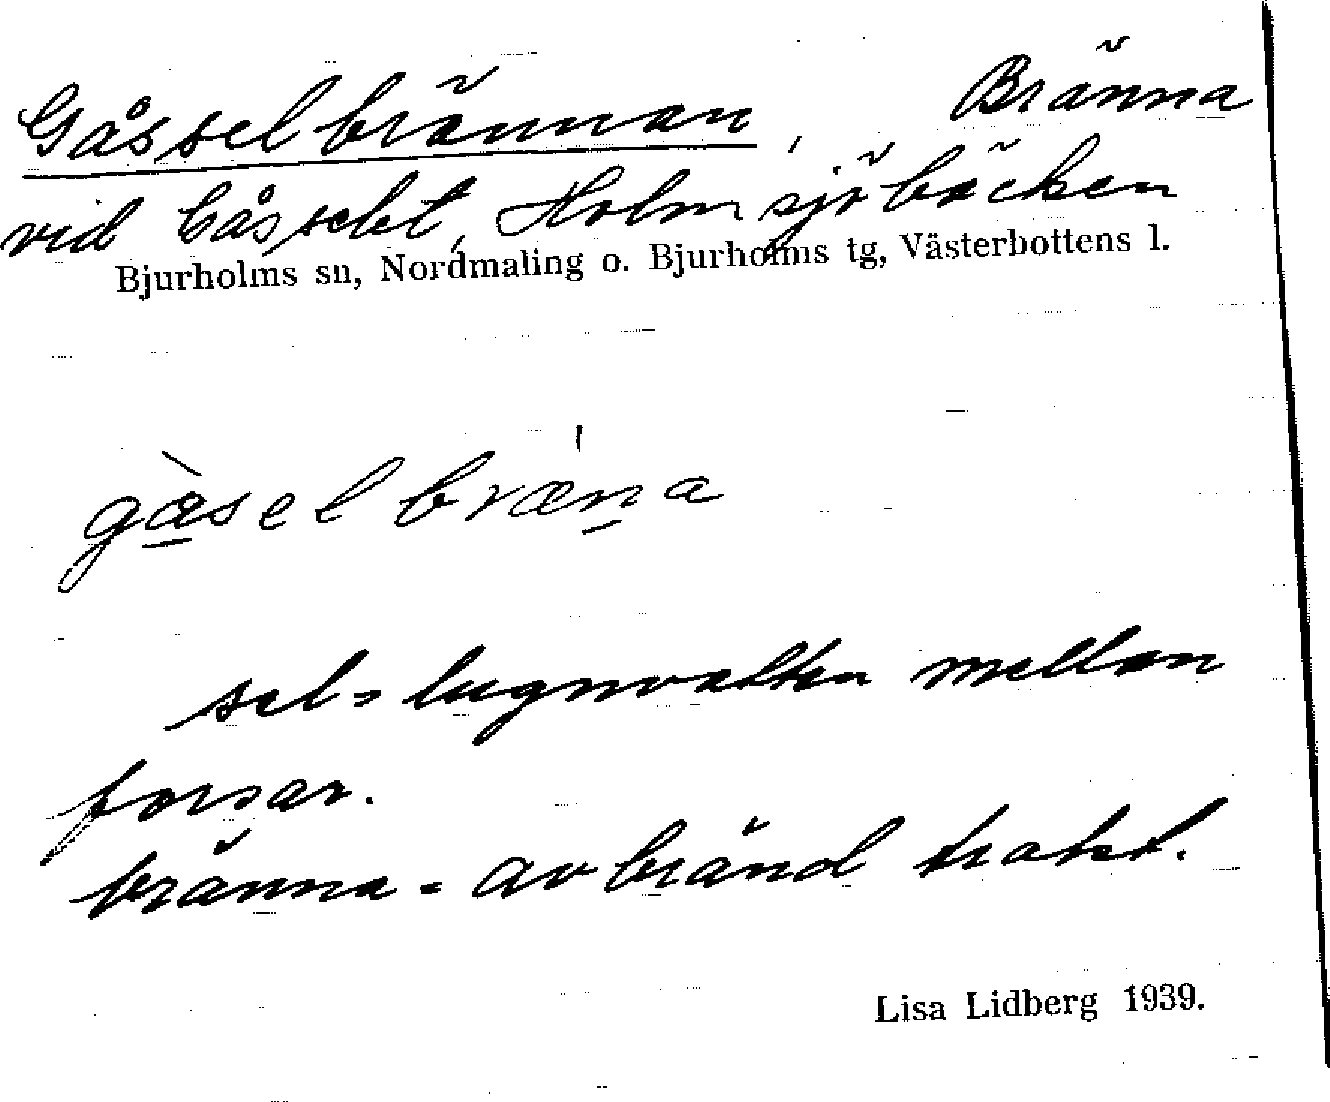 Gåsselbrännan, Bränna
vid Gåsselet, Holmsjöbäcken
Bjurholms sn, Nordmaling o. Bjurholms tg, Västerbottens l.
gàselbræna
sel = lugnvatten mellan
forsar.
bränna = avbränd trakt.
Lisa Lidberg 1939.